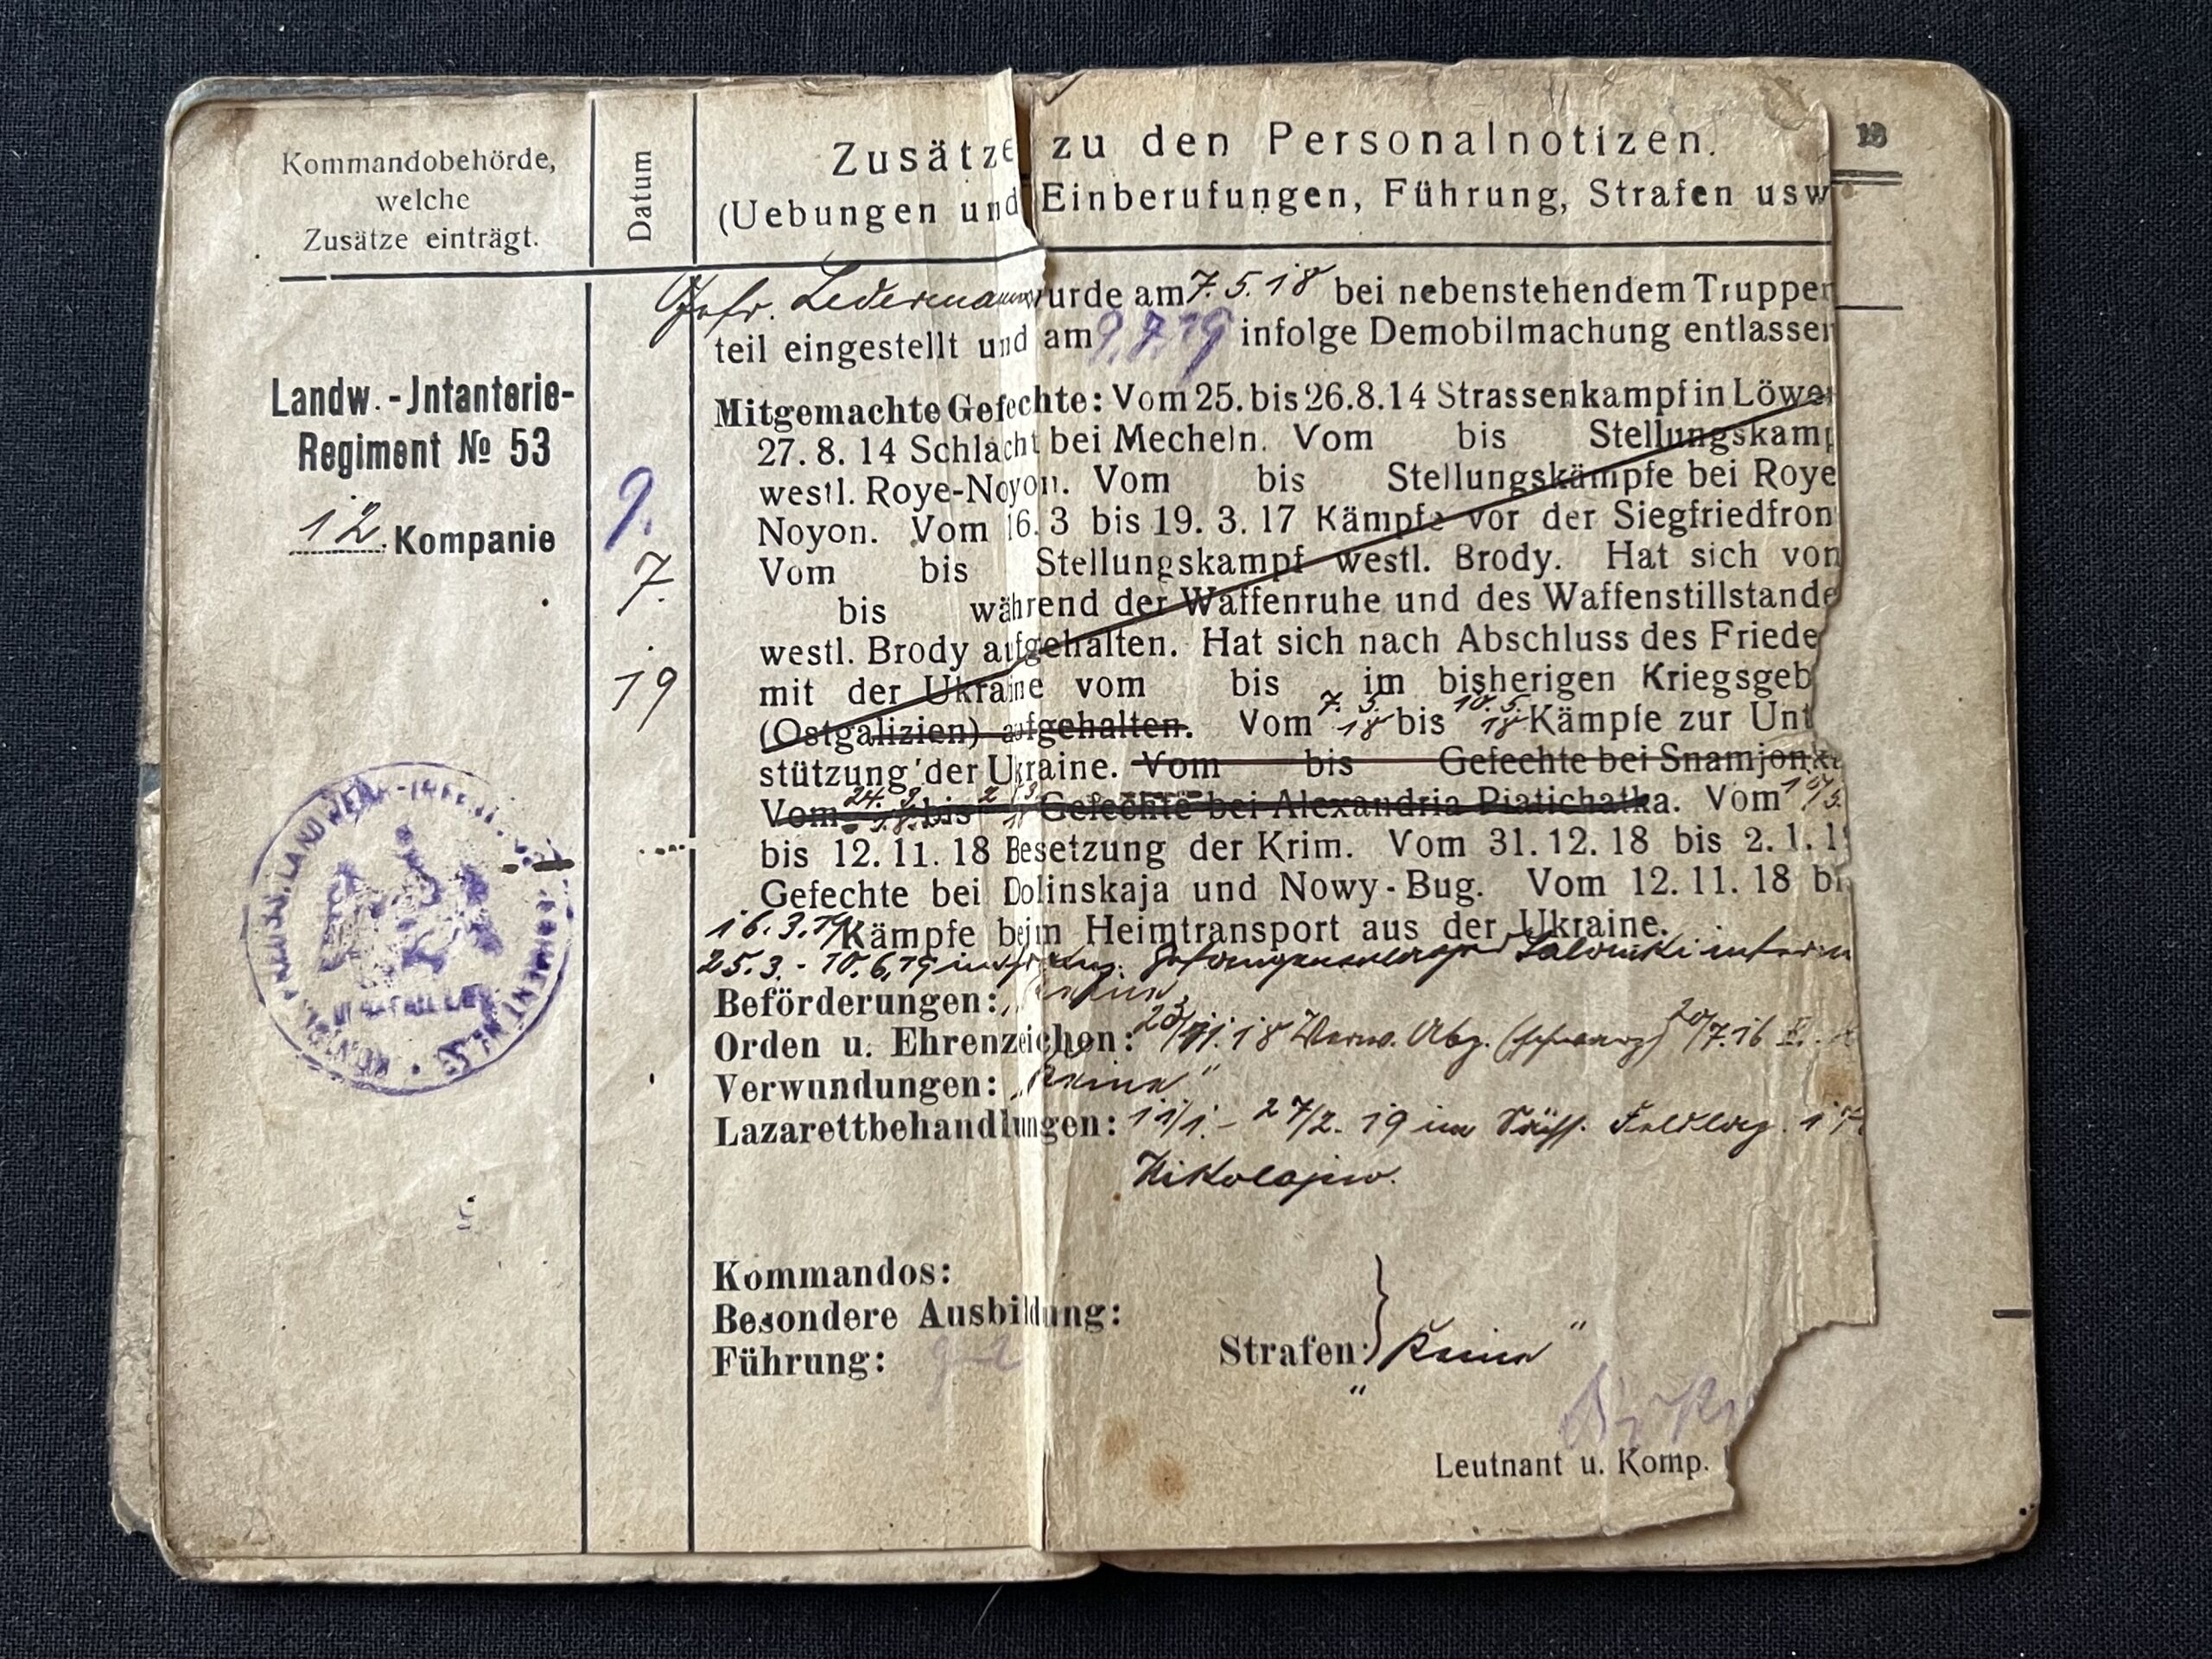 Kommandobehörde,
welche
Zusätze einträgt.
Datum
Zusätze zu den Personalnotizen.
(Uebungen und Einberufungen, Führung, Strafen usw
13
Gefr. Ledermann wurde am 7.5.18 bei nebenstehendem Truppen
teil eingestellt und am 9.7.19 infolge Demobilmachung entlassen
Landw.-Jntanterie-
Regiment № 53
12. Kompanie
9.
7.
19
Mitgemachte Gefechte: Vom 25. bis 26.8.14 Strassenkampf in Löwen
27. 8. 14 Schlacht bei Mecheln. Vom bis Stellungskamp
westl. Roye-Noyon. Vom bis Stellungskämpfe bei Roye
Noyon. Vom 16. 3 bis 19. 3. 17 Kämpfe vor der Siegfriedfron
Vom bis Stellungskampf westl. Brody. Hat sich von
bis während der Waffenruhe und des Waffenstillstande
westl. Brody aufgehalten. Hat sich nach Abschluss des Friede
mit der Ukraine vom bis im bisherigen Kriegsgeb
(Ostgalizien) aufgehalten. Vom 7. 5. 18 bis 10. 5. 18 Kämpfe zur Unt
stützung der Ukraine. Vom bis Gefechte bei Snamjonka
Vom 24. 3. 18. bis Gefechte bei Alexandria Piatichatka. Vom
bis 12. 11. 18 Besetzung der Krim. Vom 31. 12. 18 bis 2. 1. 19
Gefechte bei Dolinskaja und Nowy-Bug. Vom 12. 11. 18 bis
16.3.19 Kämpfe beim Heimtransport aus der Ukraine.
25.3. - 10.6.19 Gefangenenlager Saloniki intern
Beförderungen: „Keine"
Orden u. Ehrenzeichen: 18 Verw. Abz. (schwarz) 20/7.16 E.
Verwundungen: „Keine"
Lazarettbehandlungen: 11/1. - 27/2. 19 im Sächs. Feldlaz.
Nikolajew.
Kommandos:
Besondere Ausbildung:
Führung: gut
Strafen: } Keine "
"
Leutnant u. Komp.